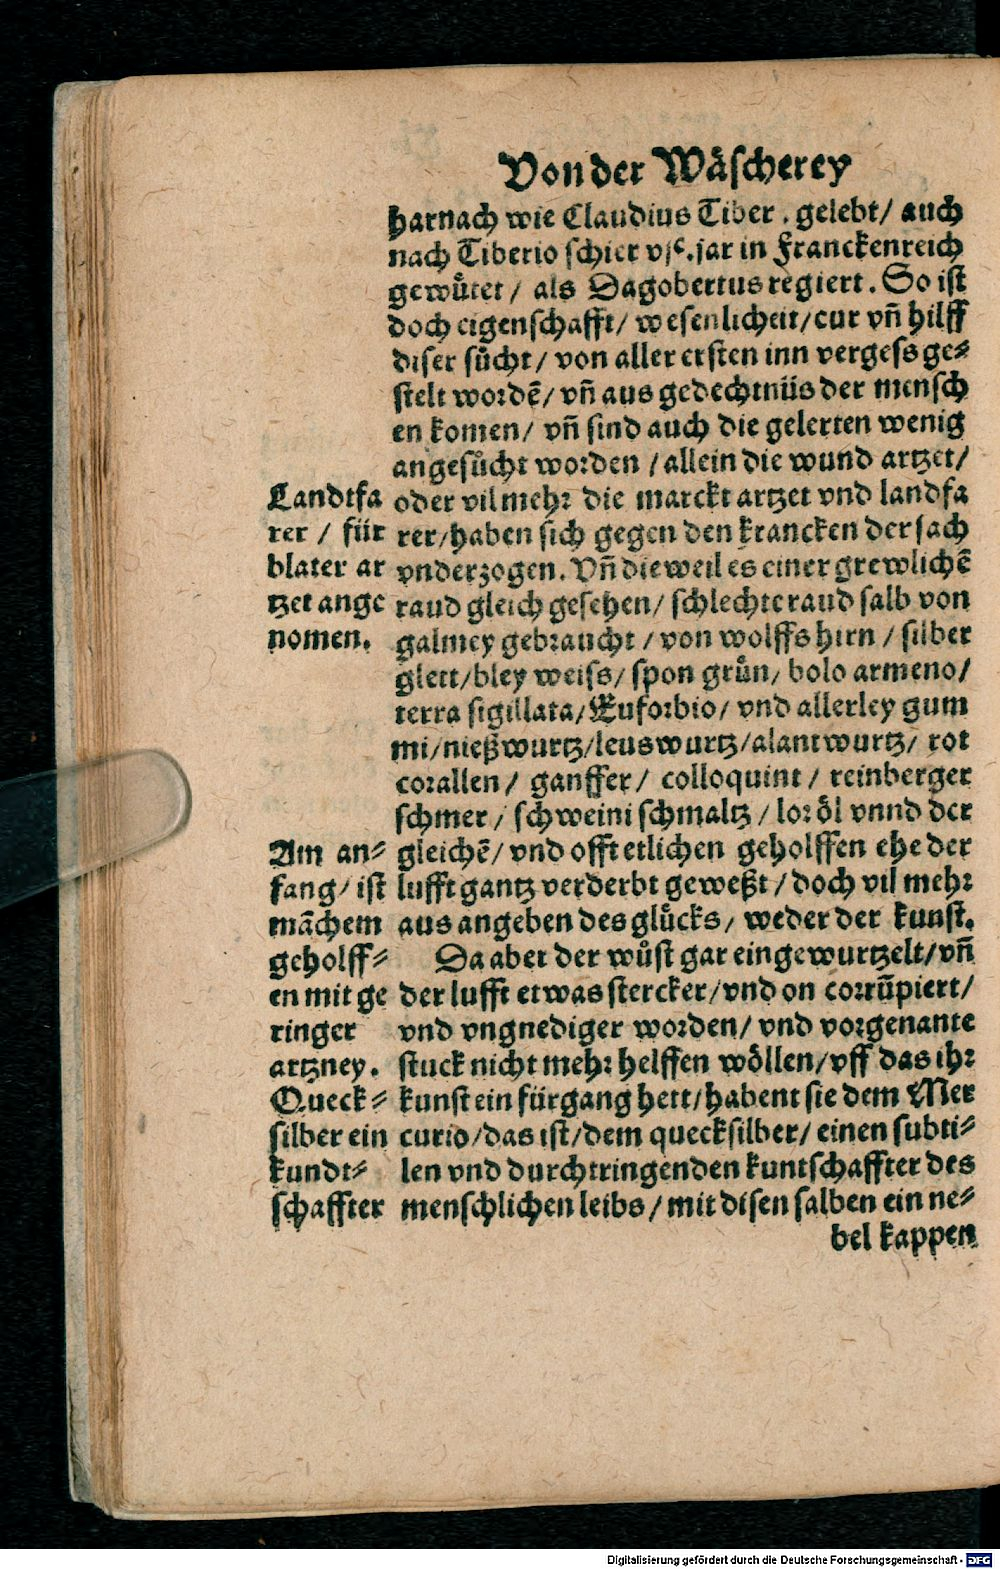 Von der Wäscherey
harnach wie Claudius Tiber. gelebt/ auch
nach Tiberio schier vjᶜ. jar in Franckenreich
gewuͤtet/ als Dagobertus regiert. So ist
doch eigenschafft/ wesenlicheit/ cur vñ hilff
diser suͤcht/ von aller ersten inn vergess ge⸗
stelt wordē/ vñ aus gedechtnüs der mensch
en komen/ vñ sind auch die gelerten wenig
angesuͦcht worden/ allein die wund artzet/
oder vil mehr die marckt artzet vnd landfa
rer/ haben sich gegen den krancken der sach
vnderzogen. Vñ die weil es einer grewlichē
raud gleich gesehen/ schlechte raud salb von
galmey gebraucht/ von wolffs hirn/ silber
glett/ bley weiss/ spon gruͤn/ bolo armeno/
terra sigillata/ Euforbio/ vnd allerley gum
mi/ nießwurtz/ leuswurtz/ alantwurtz/ rot
corallen/ ganffer/ colloquint/ reinberger
schmer/ schweini schmaltz/ lor öl vnnd der
gleichē/ vnd offt etlichen geholffen ehe der
lufft gantz verderbt geweßt/ doch vil mehr
aus angeben des gluͤcks/ weder der kunst.
Da aber der wuͦst gar eingewurtzelt/ vñ
der lufft etwas stercker/ vnd on corrūpiert/
vnd vngnediger worden/ vnd vorgenante
stuck nicht mehr helffen wöllen/ vff das ihr
kunst ein fürgang hett/ habent sie dem Mer
curio/ das ist/ dem quecksilber/ einen subti⸗
len vnd durchtringenden kuntschaffter des
menschlichen leibs/ mit disen salben ein ne⸗
bel kappen
Landtfa
rer/ für
blater ar
tzet ange
nomen.
Am an⸗
fang/ ist
māchem
geholff⸗
en mit ge
ringer
artzney.
Queck⸗
silber ein
kundt⸗
schaffter
Digitalisierung gefördert durch die Deutsche Forschungsgemeinschaft - DFG